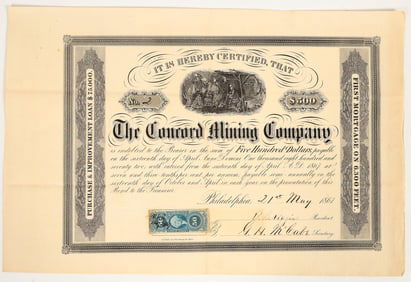 IT IS HEREBY CERTIFIED, THAT
No. 2
$500
The Concord Mining Company
is indebted to the Bearer in the sum of Five Hundred Dollars, payable
on the sixteenth day of April Anno Domini One thousand eight hundred and
seventy two, with interest from the sixteenth day of April A.D. 1867 at
seven and three tenths per cent per annum, payable semi annually on the
sixteenth day of October and April in each year on the presentation of this
Bond to the Treasurer.
Philadelphia, 21st May 1867
President
G. H. McCabe Secretary
PURCHASE & IMPROVEMENT LOAN $75,000.
FIRST MORTGAGE ON 6,300 FEET.